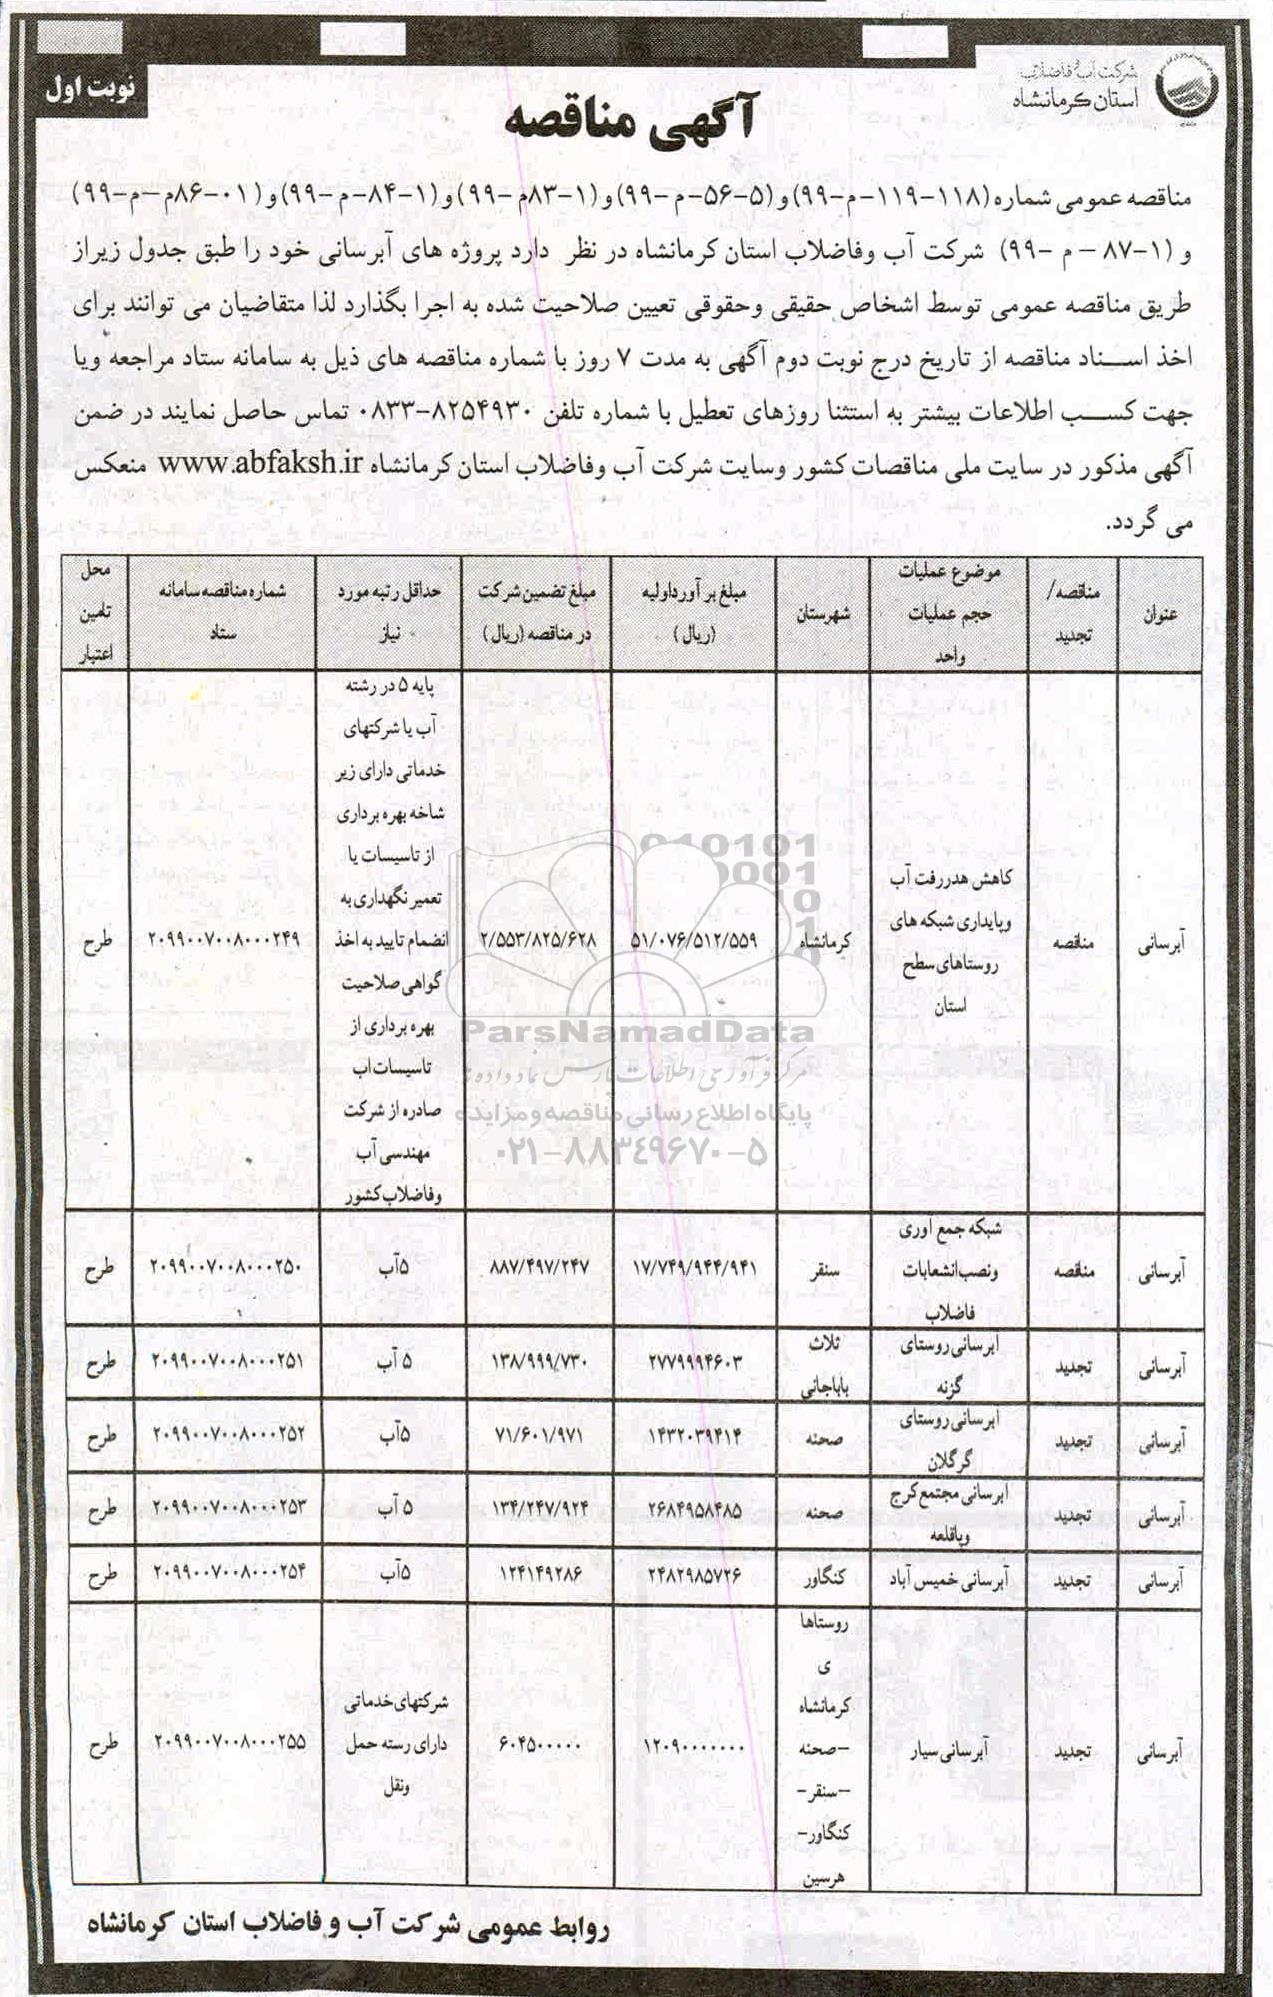 شرکت آب و فاضلاب
استان کرمانشاه
نوبت اول
آگهی مناقصه
مناقصه عمومی شماره (۱۱۸-۱۱۹-م-۹۹) و (۵-۵۶-م-۹۹) و (۱-۸۳م-۹۹) و (۱-۸۴-م-۹۹) و (۰۱-۸۶م-م-۹۹)
و (۱-۸۷-م-۹۹) شرکت آب وفاضلاب استان کرمانشاه در نظر دارد پروژه های آبرسانی خود را طبق جدول زیراز
طریق مناقصه عمومی توسط اشخاص حقیقی وحقوقی تعیین صلاحیت شده به اجرا بگذارد لذا متقاضیان می توانند برای
اخذ اسناد مناقصه از تاریخ درج نوبت دوم آگهی به مدت ۷ روز با شماره مناقصه های ذیل به سامانه ستاد مراجعه ویا
جهت کسب اطلاعات بیشتر به استثنا روزهای تعطیل با شماره تلفن ۸۲۵۴۹۳۰-۰۸۳۳ تماس حاصل نمایند در ضمن
آگهی مذکور در سایت ملی مناقصات کشور وسایت شرکت آب وفاضلاب استان کرمانشاه www.abfaksh.ir منعکس
می گردد.
عنوان
مناقصه/
تجدید
موضوع عملیات
حجم عملیات
واحد
شهرستان
مبلغ بر آورداولیه
(ریال)
مبلغ تضمین شرکت
در مناقصه (ریال)
حداقل رتبه مورد
نیاز
شماره مناقصه سامانه
ستاد
محل
تامین
اعتبار
آبرسانی
مناقصه
کاهش هدررفت آب
وپایداری شبکه های
روستاهای سطح
استان
کرمانشاه
۵۱/۰۷۶/۵۱۲/۵۵۹
۲/۵۵۳/۸۲۵/۶۲۸
پایه ۵ در رشته
آب یا شرکتهای
خدماتی دارای زیر
شاخه بهره برداری
از تاسیسات یا
تعمیر نگهداری به
انضمام تایید به اخذ
گواهی صلاحیت
بهره برداری از
تاسیسات اب
صادره از شرکت
مهندسی آب
وفاضلاب کشور
۲۰۹۹۰۰۷۰۰۸۰۰۰۲۴۹
طرح
آبرسانی
مناقصه
شبکه جمع آوری
ونصب انشعابات
فاضلاب
سنقر
۱۷/۷۴۹/۹۴۴/۹۴۱
۸۸۷/۴۹۷/۲۴۷
۵آب
۲۰۹۹۰۰۷۰۰۸۰۰۰۲۵۰
طرح
آبرسانی
تجدید
ابرسانی روستای
گزنه
ثلاث
باباجانی
۲۷۷۹۹۹۴۶۰۳
۱۳۸/۹۹۹/۷۳۰
۵ آب
۲۰۹۹۰۰۷۰۰۸۰۰۰۲۵۱
طرح
آبرسانی
تجدید
ابرسانی روستای
گرگلان
صحنه
۱۴۳۲۰۳۹۴۱۴
۷۱/۶۰۱/۹۷۱
۵آب
۲۰۹۹۰۰۷۰۰۸۰۰۰۲۵۲
طرح
آبرسانی
تجدید
ابرسانی مجتمع کرج
وپاقلعه
صحنه
۲۶۸۴۹۵۸۴۸۵
۱۳۴/۲۴۷/۹۲۴
۵ آب
۲۰۹۹۰۰۷۰۰۸۰۰۰۲۵۳
طرح
آبرسانی
تجدید
آبرسانی خمیس آباد
کنگاور
۲۴۸۲۹۸۵۷۲۶
۱۲۴۱۴۹۲۸۶
۵آب
۲۰۹۹۰۰۷۰۰۸۰۰۰۲۵۴
طرح
آبرسانی
تجدید
آبرسانی سیار
روستاها
ی
کرمانشاه
-صحنه
-سنقر-
کنگاور-
هرسین
۱۲۰۹۰۰۰۰۰۰۰
۶۰۴۵۰۰۰۰۰
شرکتهای خدماتی
دارای رسته حمل
ونقل
۲۰۹۹۰۰۷۰۰۸۰۰۰۲۵۵
طرح
روابط عمومی شرکت آب و فاضلاب استان کرمانشاه
ParsNamadData
مرکز فرآوری اطلاعات پارس نماد داده ها
پایگاه اطلاع رسانی مناقصه و مزایده
۰۲۱-۸۸۳۴۹۶۷۰-۵